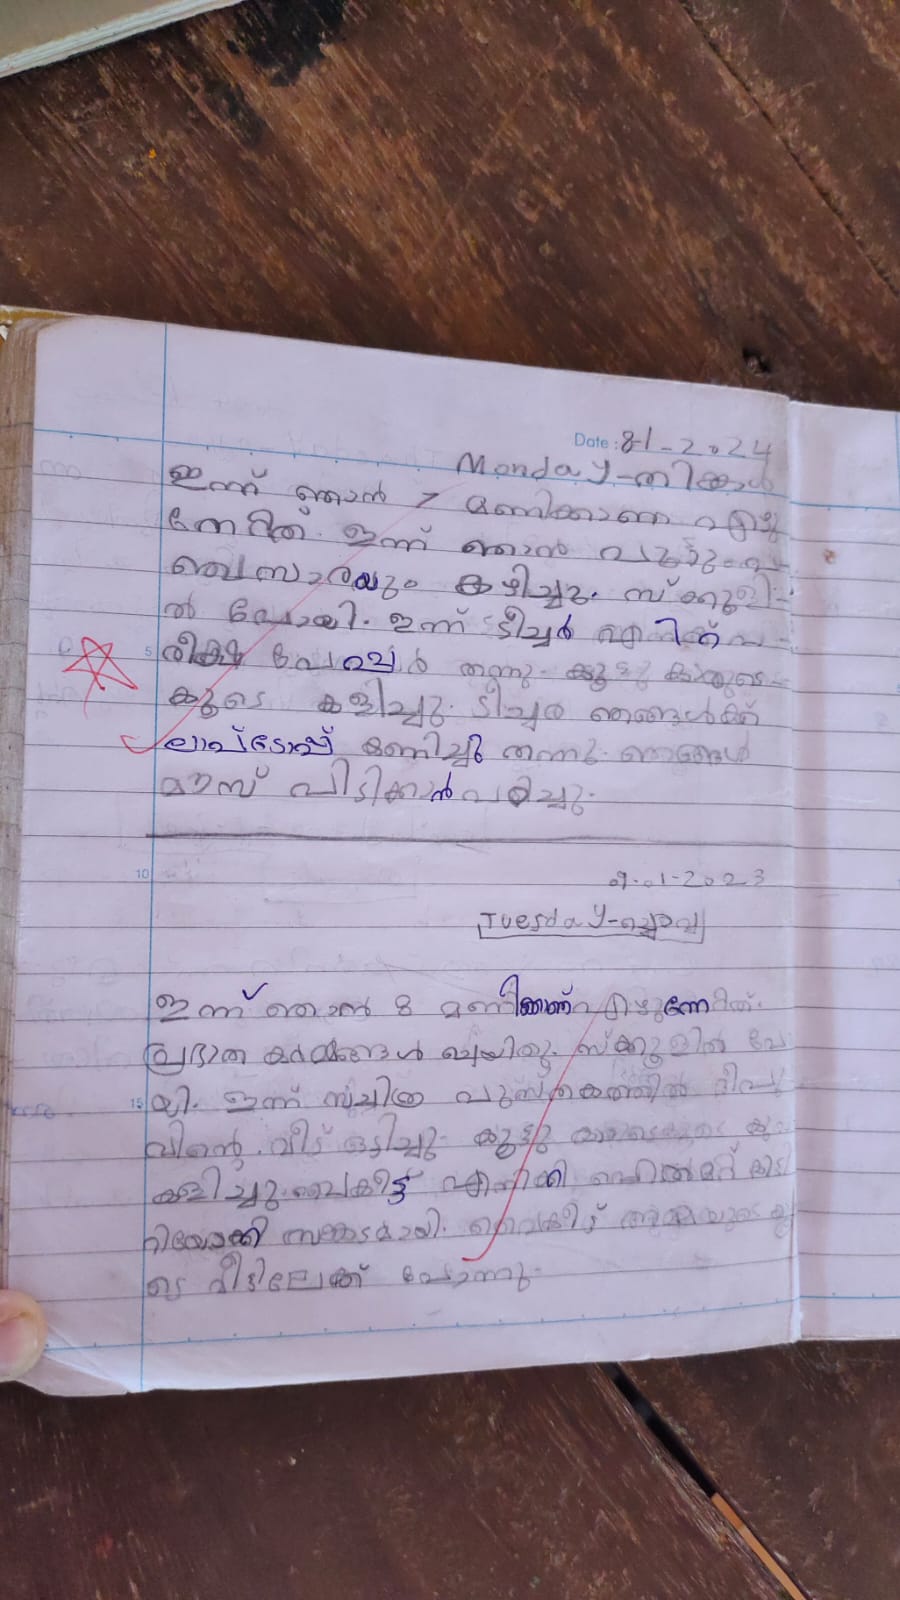 Date : 8-1-2024
Monday-തിങ്കൾ
ഇന്ന് ഞാൻ 7 മണിക്കാണ എഴു
ന്നേറ്റത്. ഇന്ന് ഞാൻ പുട്ടും പ
ഞ്ചസാരയും കഴിച്ചു. സ്ക്കൂളി-
ൽ പോയി. ഇന്ന് ടീച്ചർ എനിക്ക് പ-
5 രീക്ഷ പേപ്പർ തന്നു. കൂട്ടുകാരുടെ-
കൂടെ കളിച്ചു. ടിച്ചർ ഞങ്ങൾക്ക്
ലാപ്ടോപ്പ് കണിച്ചു തന്നു. ഞങ്ങൾ
മൗസ് പിടിക്കാൻ പഠിച്ചു.
10
09-01-2023
Tuesday-ചൊവ്വ
ഇന്ന് ഞാൻ 8 മണിക്കാണ് എഴുന്നേറ്റത്.
പ്രഭാത കർമ്മങ്ങൾ ചെയ്തു. സ്ക്കൂളിൽ പോ
15 യി. ഇന്ന് സചിത്ര പുസ്തകത്തിൽ ദീപു
വിന്റെ വീട് ഒട്ടിച്ചു. കൂട്ടു
കളിച്ചു. വൈകീട്ട് എനിക്ക് ഹെൽമറ്റ്
സങ്കടമായി. വൈകീട്ട് അമ്മയുടെ കൂ
ടെ വീട്ടിലേക്ക് പോന്നു.